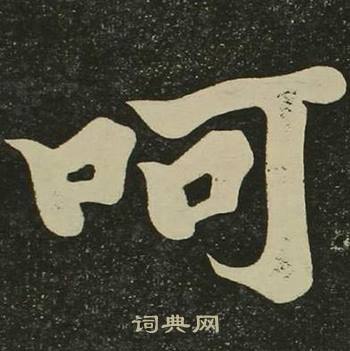 呵
词典网